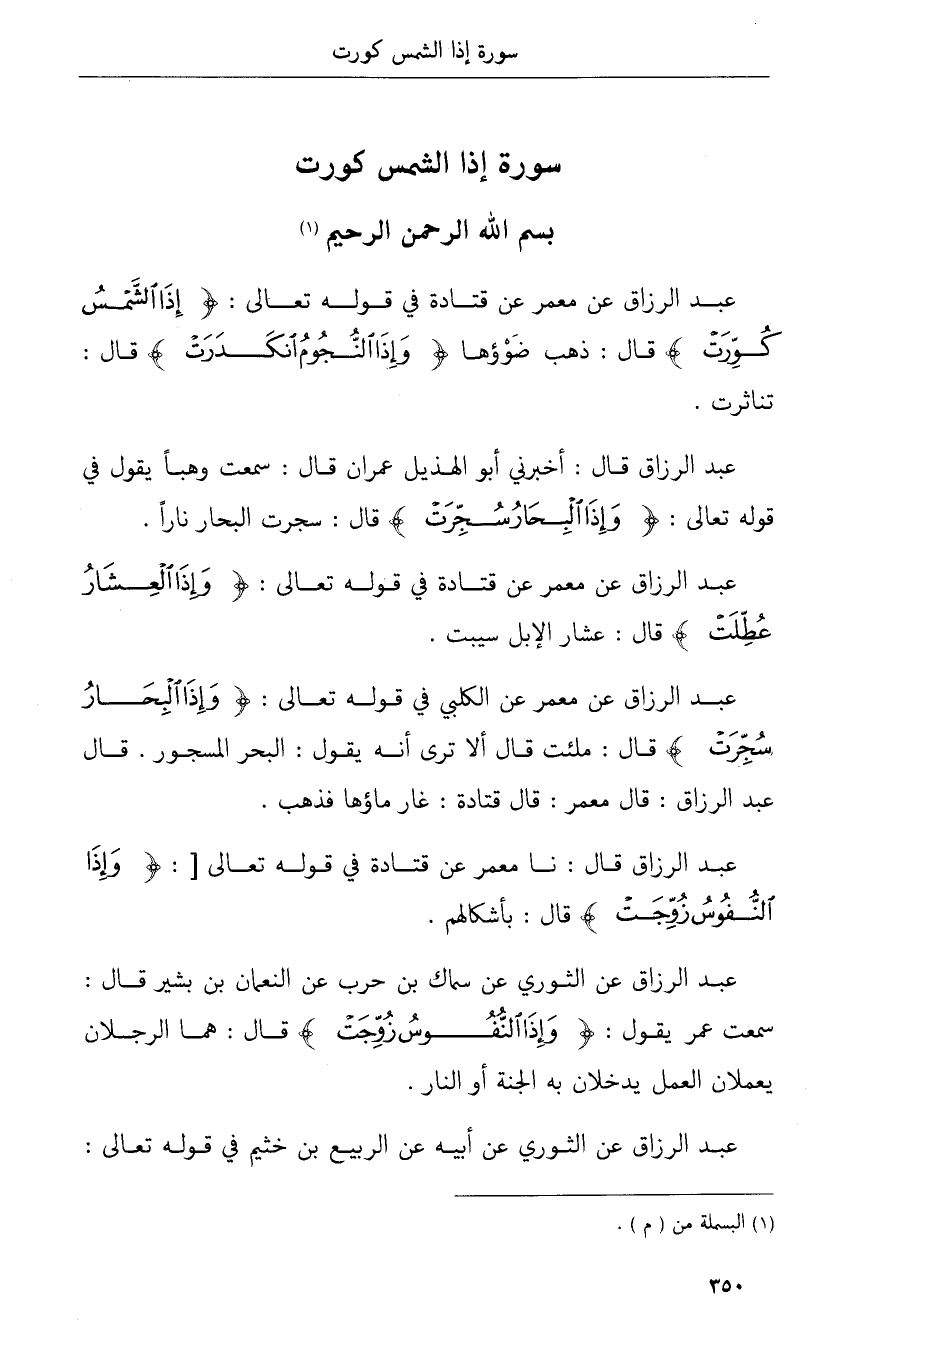 سورة إذا الشمس كورت
سورة إذا الشمس كورت
بسم الله الرحمن الرحيم (١)
عبد الرزاق عن معمر عن قتادة في قوله تعالى : ﴿ إِذَا ٱلشَّمْسُ
كُوِّرَتْ ﴾ قال : ذهب ضَوْؤها ﴿ وَإِذَا ٱلنُّجُومُ ٱنكَدَرَتْ ﴾ قال :
تناثرت .
عبد الرزاق قال : أخبرني أبو الهذيل عمران قال : سمعت وهباً يقول في
قوله تعالى : ﴿ وَإِذَا ٱلْبِحَارُ سُجِّرَتْ ﴾ قال : سجرت البحار ناراً .
عبد الرزاق عن معمر عن قتادة في قوله تعالى : ﴿ وَإِذَا ٱلْعِشَارُ
عُطِّلَتْ ﴾ قال : عشار الإبل سيبت .
عبد الرزاق عن معمر عن الكلبي في قوله تعالى : ﴿ وَإِذَا ٱلْبِحَارُ
سُجِّرَتْ ﴾ قال : ملئت قال ألا ترى أنه يقول : البحر المسجور . قال
عبد الرزاق : قال معمر : قال قتادة : غار ماؤها فذهب .
عبد الرزاق قال : نا معمر عن قتادة في قوله تعالى [ : ﴿ وَإِذَا
ٱلنُّفُوسُ زُوِّجَتْ ﴾ قال : بأشكالهم .
عبد الرزاق عن الثوري عن سماك بن حرب عن النعمان بن بشير قال :
سمعت عمر يقول : ﴿ وَإِذَا ٱلنُّفُوسُ زُوِّجَتْ ﴾ قال : هما الرجلان
يعملان العمل يدخلان به الجنة أو النار .
عبد الرزاق عن الثوري عن أبيه عن الربيع بن خثيم في قوله تعالى :
(١) البسملة من ( م ) .
٣٥٠